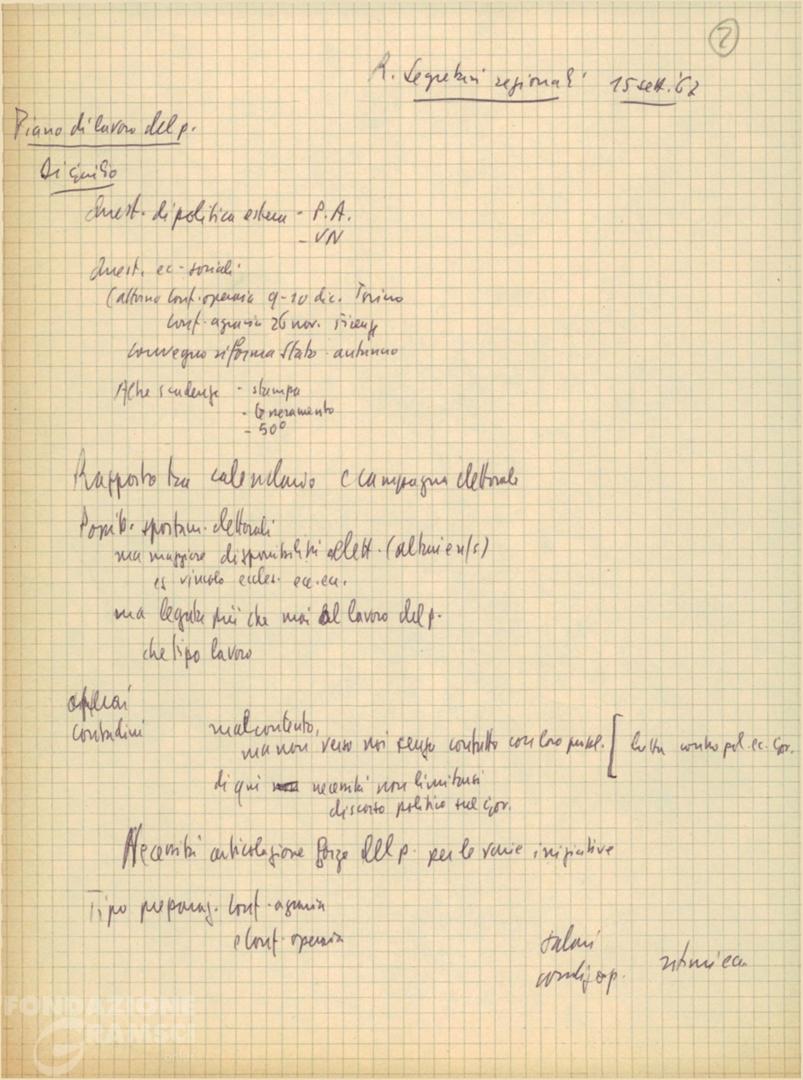 2
R. Segretari regionali 15 sett. '67
Piano di lavoro del p.
Squilio
Quest. di politica estera - P.A.
- VN
Quest. ec-sociali
(attorno Conf. operaia 9-10 dic. Torino
Conf. agraria 26 nov. Firenze
Convegno riforma Stato autunno
Altre scadenze - stampa
- tesseramento
- 50°
Rapporto tra calendario e campagna elettorale
Possib. spostam. elettorali
ma maggiore disponibilità elett.
es vincolo eccles. ecc. ecc.
ma legata più che mai al lavoro del p.
che tipo lavoro
operai
contadini
malcontento,
ma non verso noi senza contatto con loro [ lotta contro pol. ec. gov.
di qui necessità non limitarsi
discorso politico sul gov.
Necessità articolazione forze del p. per le varie iniziative
Tipo preparaz. Conf. agraria
e Conf. operaia
salari
condiz op. ritmi ecc.
FONDAZIONE
GRAMSCI